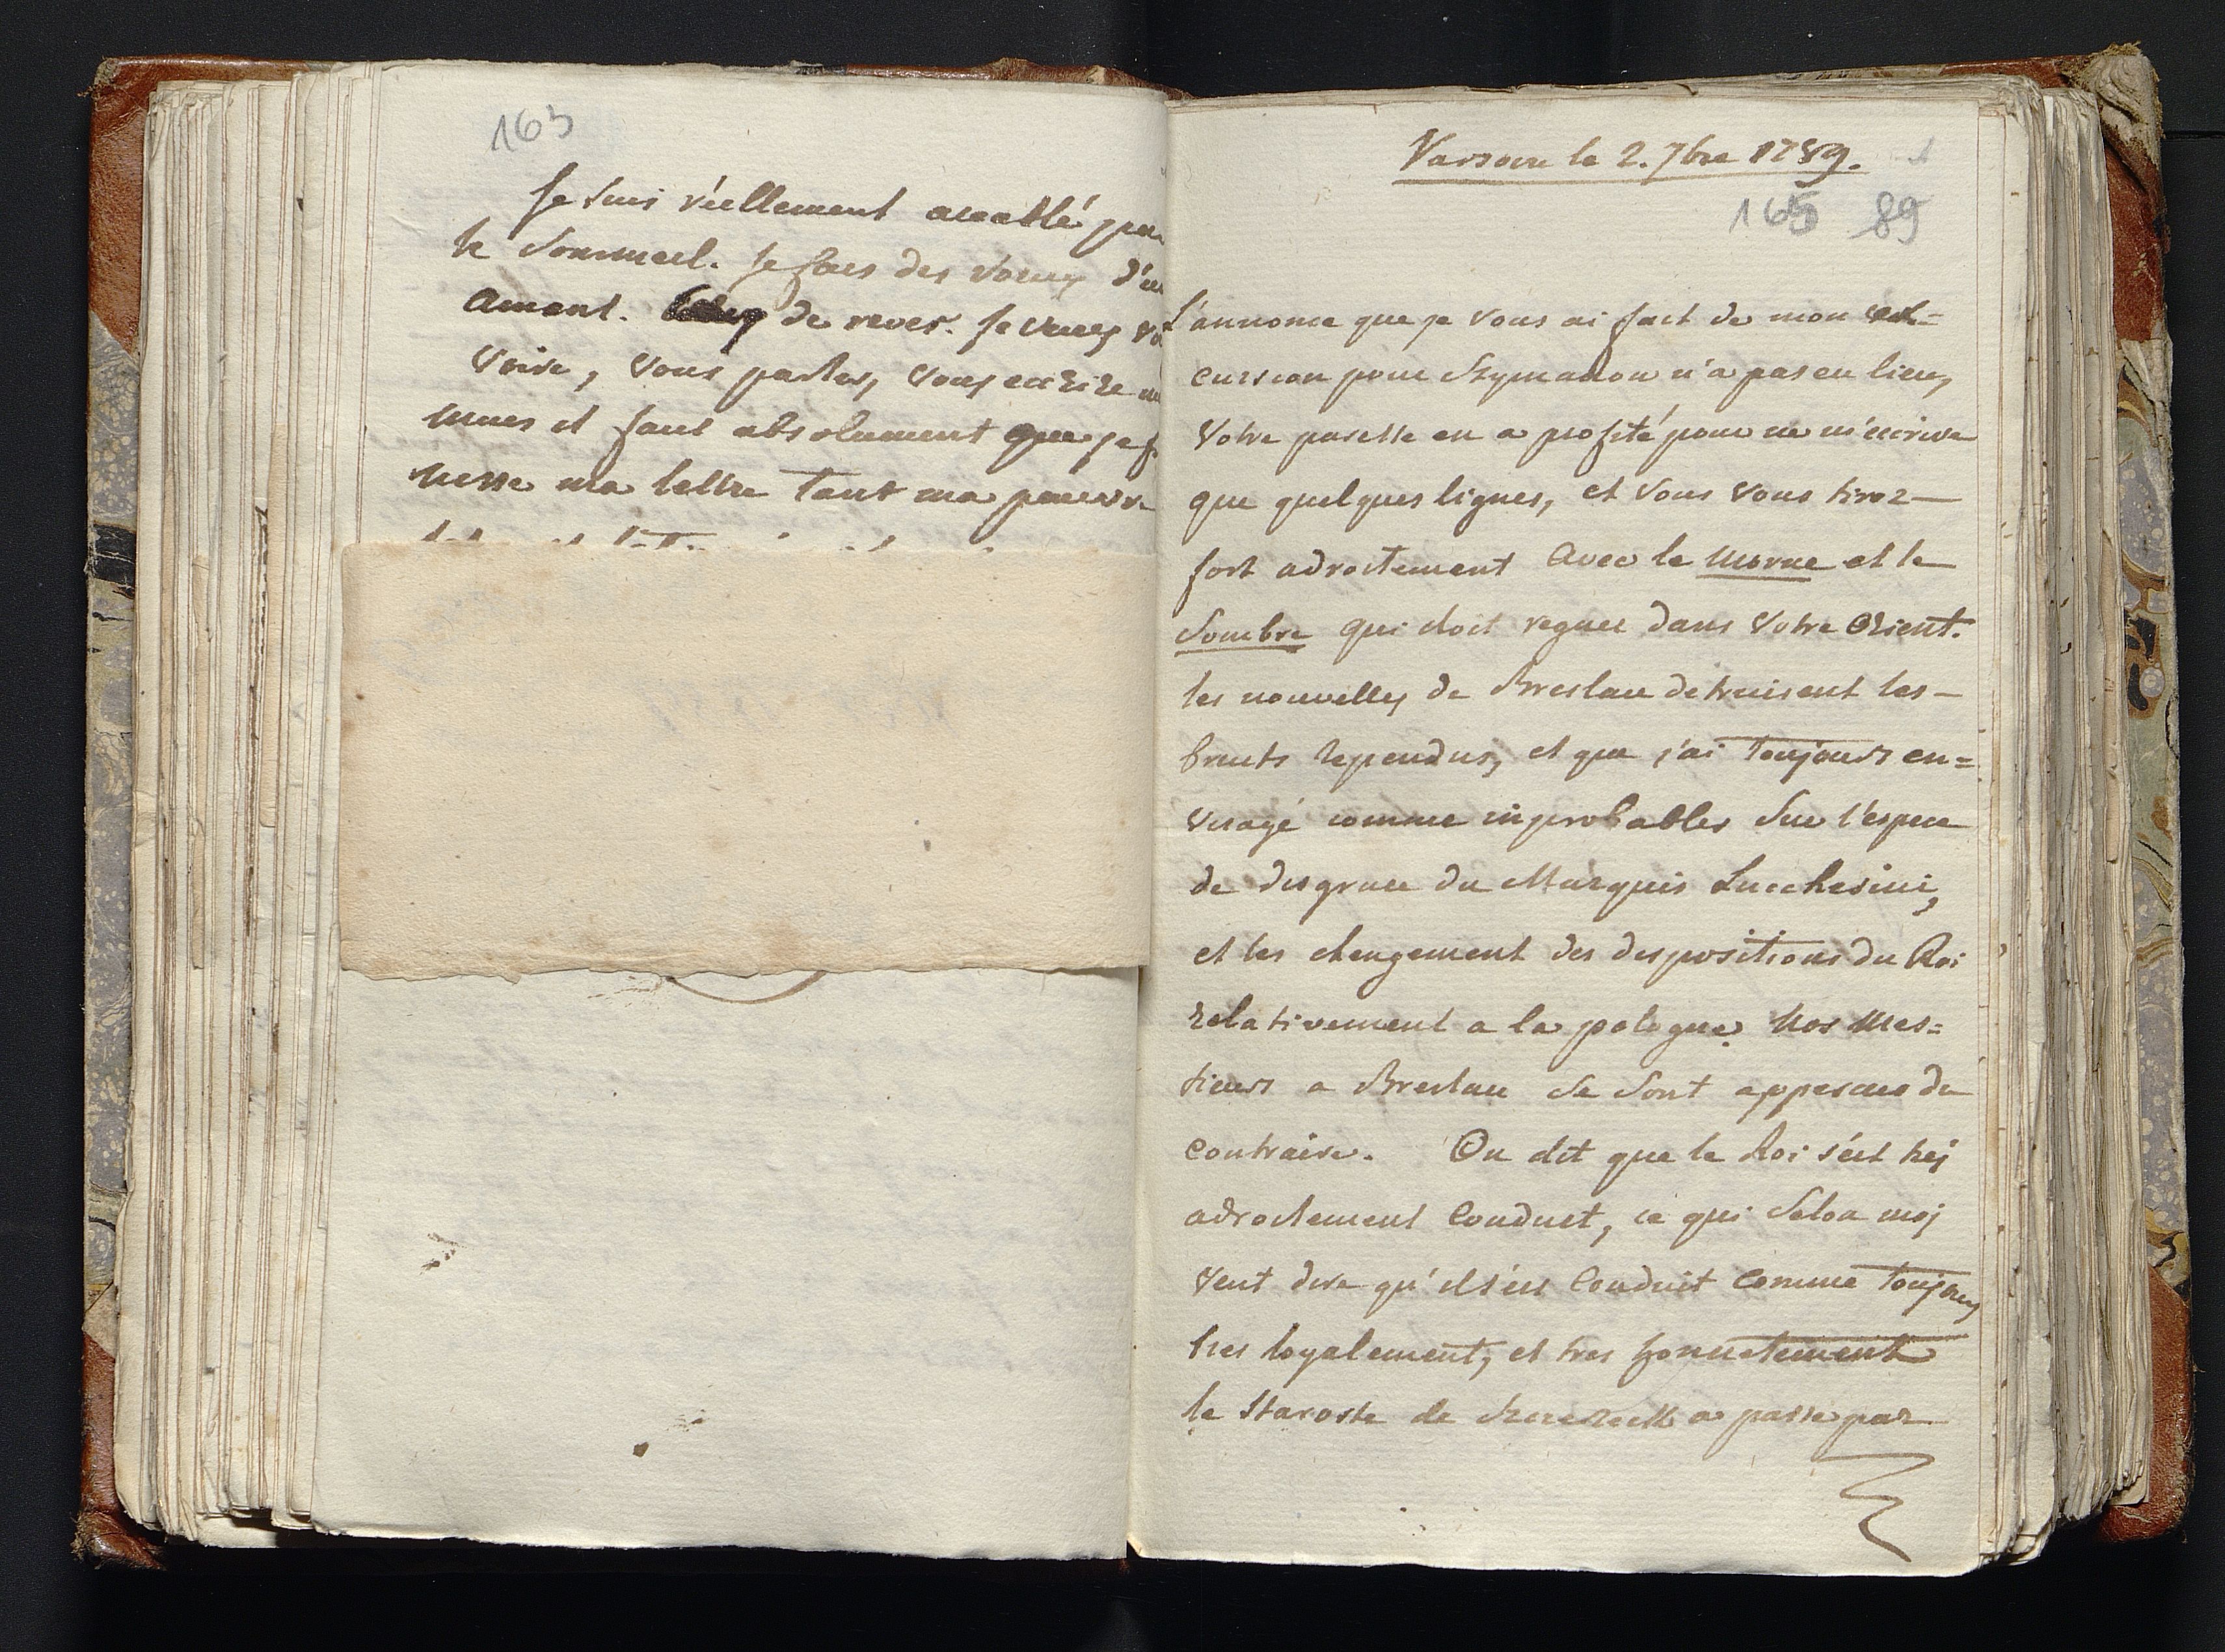 163
Je suis réellement accablé par
le Sommeil. Je fais des voeux d'un
Amant. de rever. Je veux
Voire, Vous parler, Vous ecrire
mais il faut absolument que je
nisse ma lettre tant ma pauvre
Varsovie le 2. 7bre 1789.
165 89
L'annonce que je Vous ai fait de mon ex=
cursion pour Szymanow n'a pas eu lieu,
Votre paresse en a profité pour ne m'ecrire
que quelques lignes, et Vous Vous tirez
fort adroitement Avec le morne et le
Sombre qui doit regner dans Votre Orient.
les nouvelles de Breslau detruisent les
bruits rependus, et que j'ai toujours en=
visagé comme inprobables Sur l'espece
de disgrace du Marquis Lucchesini,
et les chengement des dispositions du Roi
relativement a la pologne. Nos Mes=
sieurs a Breslau Se Sont apperçus du
Contraire. On dit que le Roi s'est trés
adroitement Conduit, ce qui Selon moi
Veut dire qu'il s'est Conduit Comme toujours
tres loyalement, et tres honnetement
le Staroste de a passé par